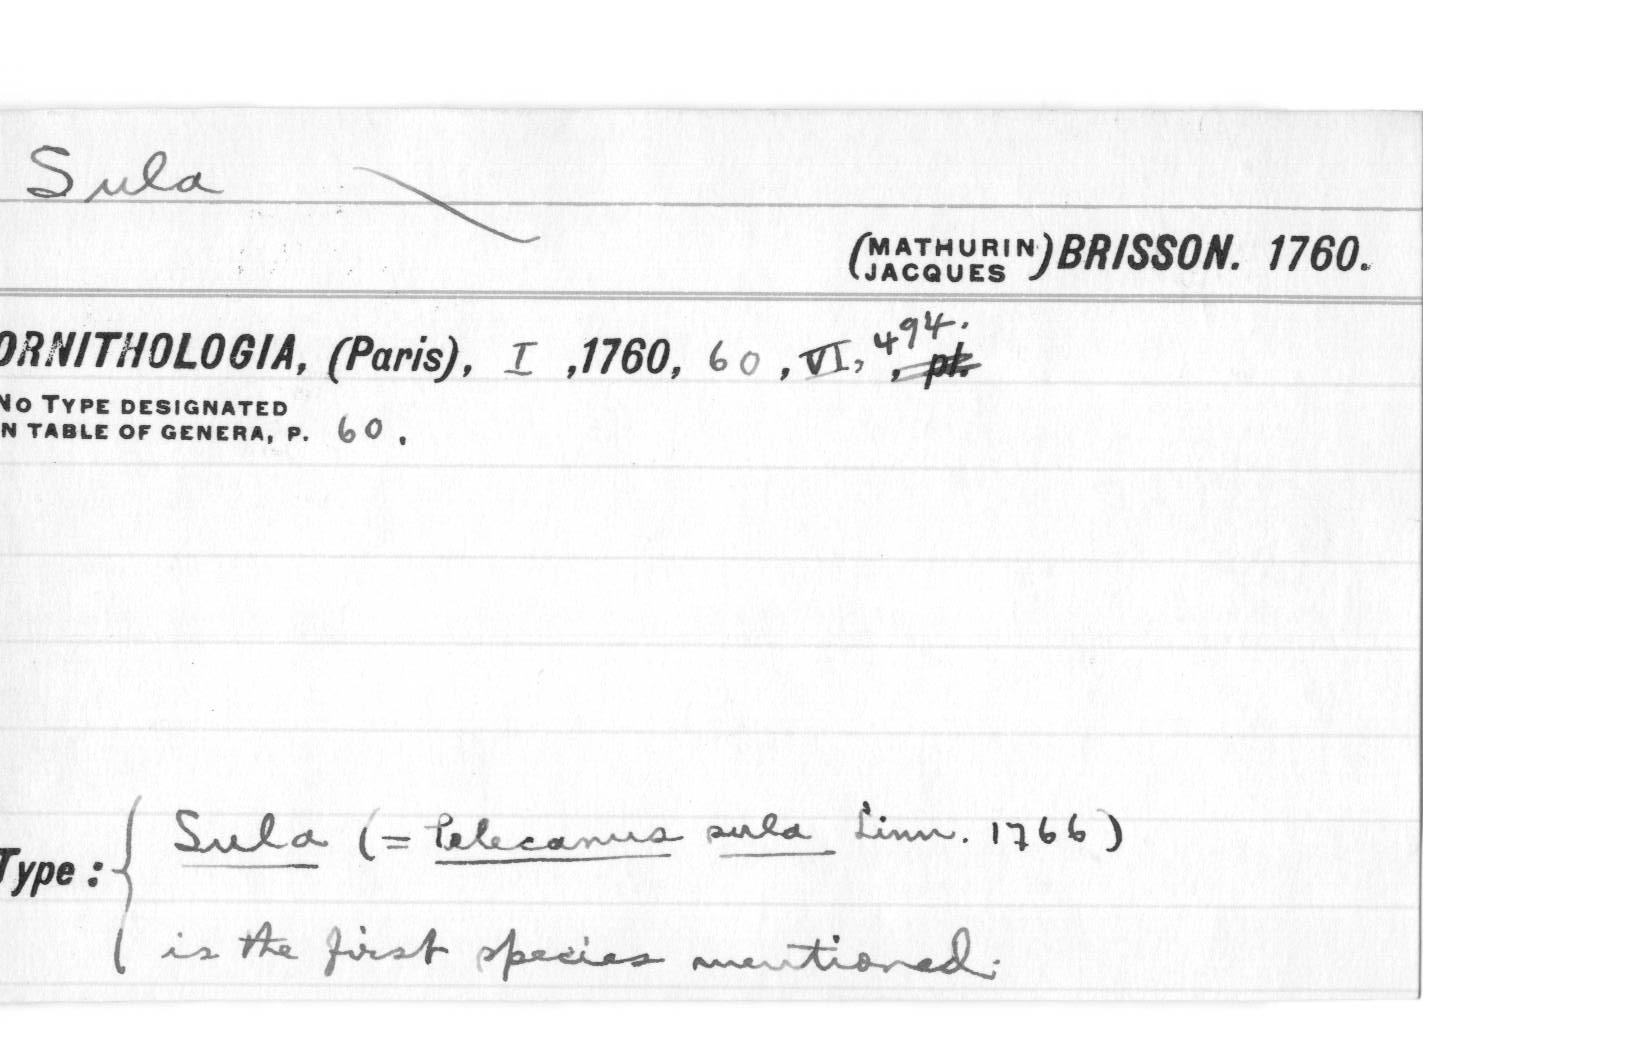 Sula
(MATHURIN JACQUES) BRISSON. 1760.
ORNITHOLOGIA, (Paris), I ,1760, 60 , VI, 494. , pl.
NO TYPE DESIGNATED
IN TABLE OF GENERA, P. 60 .
Type : { Sula (= Pelecanus sula Linn. 1766)
is the first species mentioned.